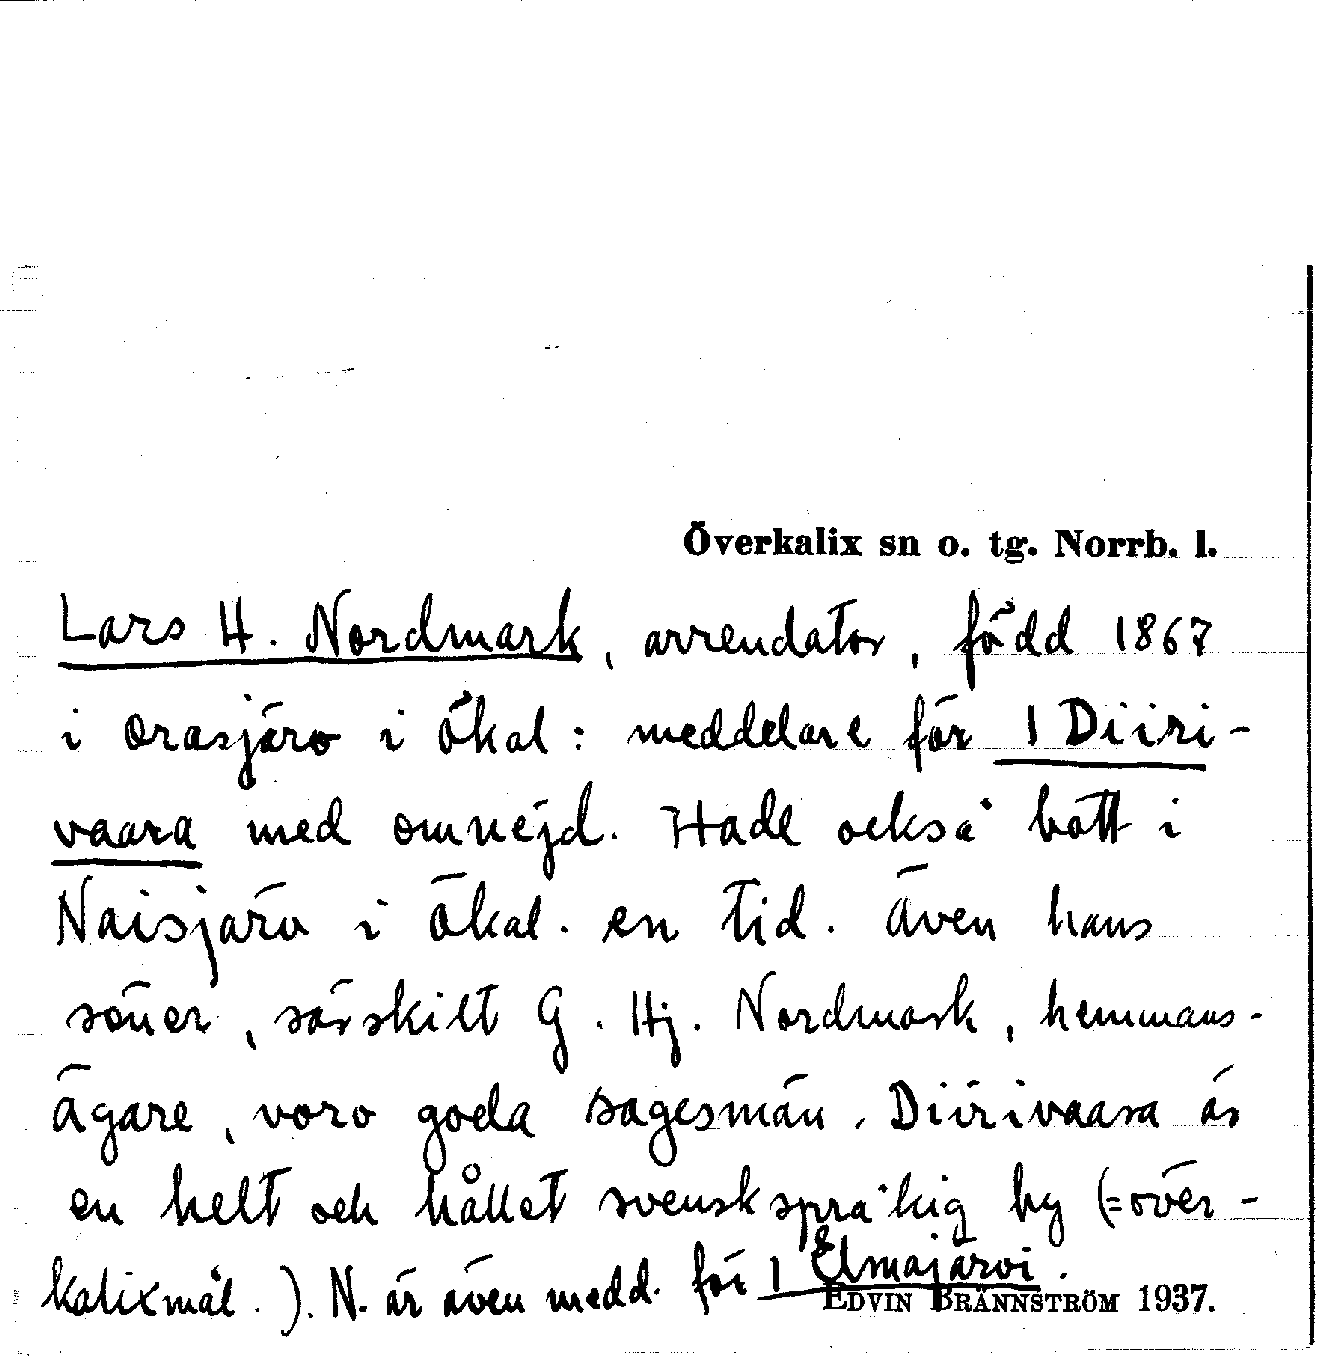 Överkalix sn o. tg. Norrb. l.
Lars H. Nordmark, arrendator, född 1867
i Orasjärv i Ökal: meddelare för 1 Diiri-
vaara med omnejd. Hade också bott i
Naisjärv i Ökal. en tid. Även hans
söner, särskilt G. Hj. Nordmark, hemmans-
ägare, voro goda sagesmän. Diirivaara är
en helt och hållet svenskspråkig by (= över-
kalixmål.). N. är även medd. för 1 Elmajärvi.
EDVIN BRÄNNSTRÖM 1937.